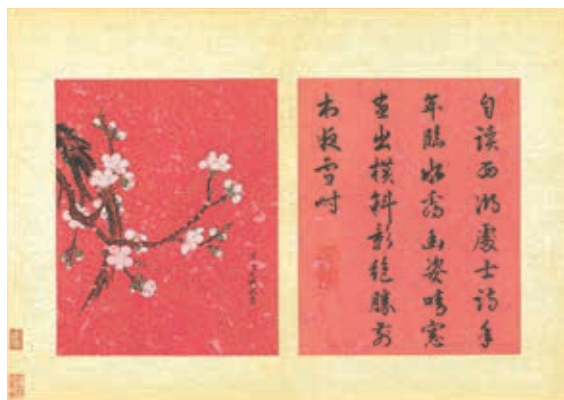 自讀西湖處士詩年
年臨水看幽姿晴窗
畫出橫斜影絕勝前
村夜雪時